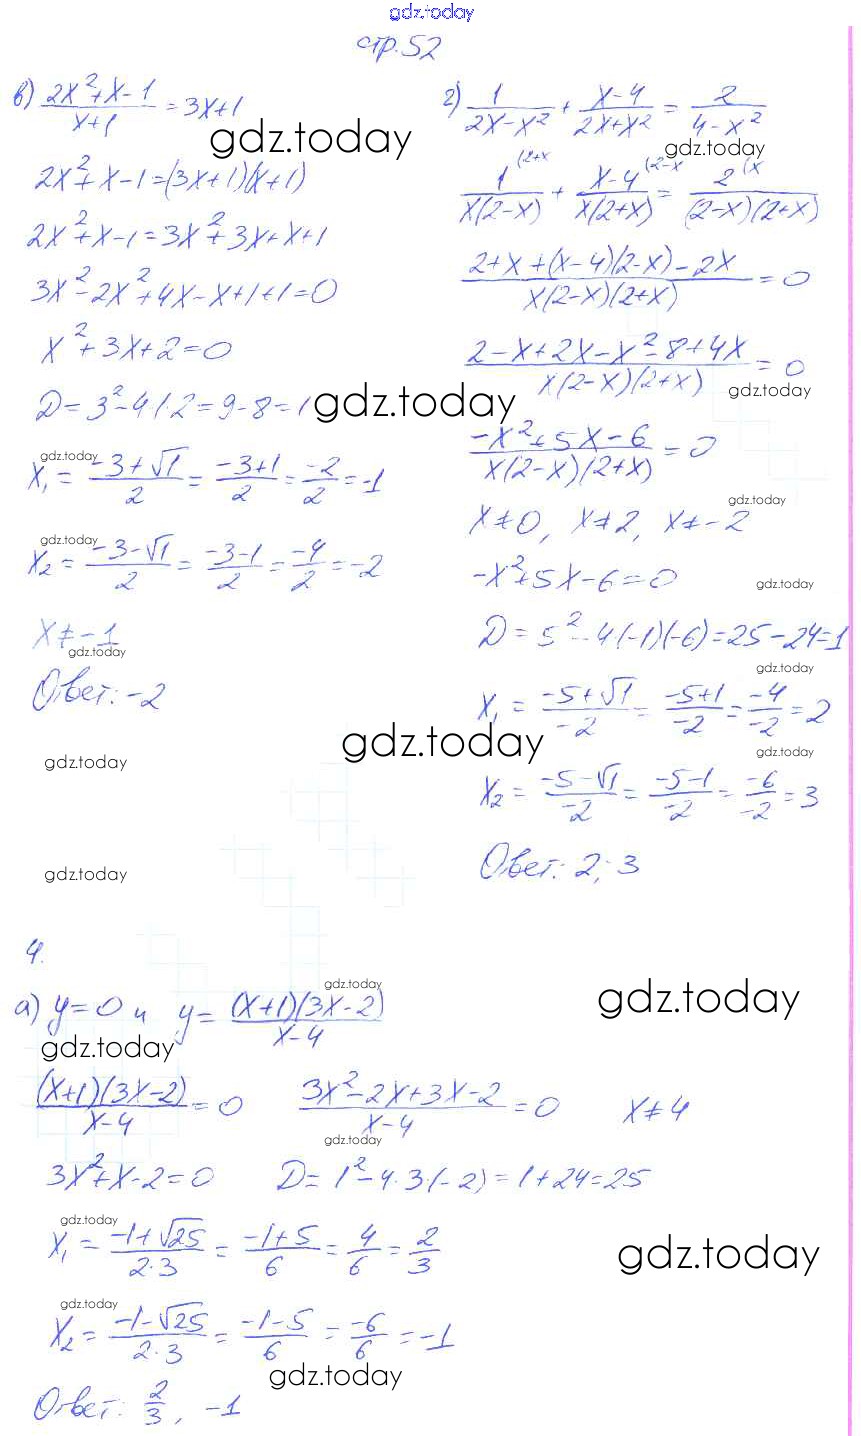 gdz.today
стр. 52
в) (2x²+x-1)/(x+1) = 3x+1
gdz.today
2x²+x-1=(3x+1)(x+1)
2x²+x-1=3x²+3x+x+1
3x²-2x²+4x-x+1+1=0
x²+3x+2=0
D=3²-4·1·2=9-8=1
gdz.today
gdz.today
x₁ = (-3+√1)/2 = (-3+1)/2 = -2/2 = -1
gdz.today
x₂ = (-3-√1)/2 = (-3-1)/2 = -4/2 = -2
x≠-1
gdz.today
Ответ: -2
gdz.today
gdz.today
gdz.today
г) 1/(2x-x²) + (x-4)/(2x+x²) = 2/(4-x²)
gdz.today
1^(2+x/(x(2-x)) + x-4^(2-x/(x(2+x)) = 2^(x/((2-x)(2+x))
(2+x+(x-4)(2-x)-2x)/(x(2-x)(2+x)) = 0
(2-x+2x-x²-8+4x)/(x(2-x)(2+x)) = 0
gdz.today
(-x²+5x-6)/(x(2-x)(2+x)) = 0
gdz.today
x≠0, x≠2, x≠-2
-x²+5x-6=0
gdz.today
D=5²-4(-1)(-6)=25-24=1
gdz.today
x₁ = (-5+√1)/-2 = (-5+1)/-2 = -4/-2 = 2
gdz.today
x₂ = (-5-√1)/-2 = (-5-1)/-2 = -6/-2 = 3
Ответ: 2; 3
4.
gdz.today
gdz.today
а) y=0 и y = (x+1)(3x-2)/(x-4)
gdz.today
(x+1)(3x-2)/(x-4) = 0 (3x²-2x+3x-2)/(x-4) = 0 x≠4
gdz.today
3x²+x-2=0 D=1²-4·3·(-2)=1+24=25
gdz.today
x₁ = (-1+√25)/(2·3) = (-1+5)/6 = 4/6 = 2/3
gdz.today
gdz.today
x₂ = (-1-√25)/(2·3) = (-1-5)/6 = -6/6 = -1
gdz.today
Ответ: 2/3, -1